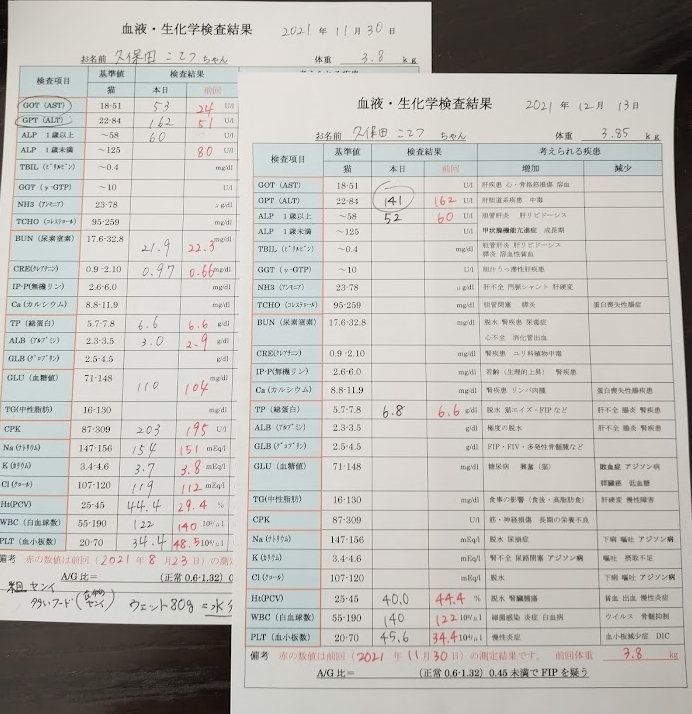 血液・生化学検査結果 2021年11月30日
お名前 久保田 こてつ ちゃん 体重 3.8 kg
検査項目 基準値 検査結果
猫 本日 前回
GOT (AST) 18-51 53 24 U/l
GPT (ALT) 22-84 162 51 U/l
ALP 1歳以上 ~58 60 U/l
ALP 1歳未満 ~125 80 U/l
TBIL (ビリルビン) ~0.4 mg/dl
GGT (γ-GTP) ~10 U/l
NH3 (アンモニア) 23-78 μg/dl
TCHO (コレステロール) 95-259 mg/dl
BUN (尿素窒素) 17.6-32.8 21.9 22.3 mg/dl
CRE(クレアチニン) 0.9-2.10 0.97 0.66 mg/dl
IP-P(無機リン) 2.6-6.0 mg/dl
Ca (カルシウム) 8.8-11.9 mg/dl
TP (総蛋白) 5.7-7.8 6.6 6.6 g/dl
ALB (アルブミン) 2.3-3.5 3.0 2.9 g/dl
GLB (グロブリン) 2.5-4.5 g/dl
GLU (血糖値) 71-148 110 104 mg/dl
TG(中性脂肪) 16-130 mg/dl
CPK 87-309 203 195 U/l
Na (ナトリウム) 147-156 154 151 mEq/l
K (カリウム) 3.4-4.6 3.7 3.8 mEq/l
Cl (クロール) 107-120 119 112 mEq/l
Ht(PCV) 25-45 44.4 29.4 %
WBC (白血球数) 55-190 122 140 10²/μl
PLT (血小板数) 20-70 34.4 48.5 10⁴/μl
備考 赤の数値は前回(2021年8月23日)の測定
A/G 比= (正常 0.6-1.32) 0
粗センイ
多いフード ウェット80g=水分
血液・生化学検査結果 2021年12月13日
お名前 久保田 こてつ ちゃん 体重 3.85 kg
検査項目 基準値 検査結果 考えられる疾患
猫 本日 前回 増加 減少
GOT (AST) 18-51 U/l 肝疾患 心・骨格筋損傷 溶血
GPT (ALT) 22-84 141 162 U/l 肝胆道系疾患 中毒
ALP 1歳以上 ~58 52 60 U/l 胆管肝炎 肝リピドーシス
ALP 1歳未満 ~125 U/l 甲状腺機能亢進症 成長期
TBIL (ビリルビン) ~0.4 mg/dl 胆管肝炎 肝リピドーシス
膵炎 溶血性貧血
GGT (γ-GTP) ~10 U/l 胆汁うっ滞性肝疾患
NH3 (アンモニア) 23-78 μg/dl 肝不全 門脈シャント 肝硬変
TCHO (コレステロール) 95-259 mg/dl 胆管閉塞 膵炎 蛋白喪失性腸症
BUN (尿素窒素) 17.6-32.8 mg/dl 脱水 腎疾患 尿毒症
心不全 消化管出血
CRE(クレアチニン) 0.9-2.10 mg/dl 腎疾患 ユリ科植物中毒
IP-P(無機リン) 2.6-6.0 mg/dl 若齢(生理的上昇) 腎疾患
Ca (カルシウム) 8.8-11.9 mg/dl 腎疾患 リンパ肉腫 蛋白喪失性腸疾患
TP (総蛋白) 5.7-7.8 6.8 6.6 g/dl 脱水 猫エイズ・FIP など 肝不全 腸炎 腎疾患
ALB (アルブミン) 2.3-3.5 g/dl 極度の脱水 肝不全 腸炎 腎疾患
GLB (グロブリン) 2.5-4.5 g/dl FIP・FIV・多発性骨髄腫など
GLU (血糖値) 71-148 mg/dl 糖尿病 興奮(猫) 敗血症 アジソン病
膵臓癌 低血糖
TG(中性脂肪) 16-130 mg/dl 食事の影響(食後・高脂肪食) 肝硬変 慢性障害
CPK 87-309 U/l 筋・神経損傷 長期の栄養不良
Na (ナトリウム) 147-156 mEq/l 脱水 尿崩症 下痢 嘔吐 アジソン病
K (カリウム) 3.4-4.6 mEq/l 腎不全 尿路閉塞 アジソン病 嘔吐 摂取不足
Cl (クロール) 107-120 mEq/l 脱水 下痢 嘔吐 アジソン病
Ht(PCV) 25-45 40.0 44.4 % 脱水 腎臓腫瘍 貧血 出血 慢性炎症
WBC (白血球数) 55-190 140 122 10²/μl 細菌感染 炎症 白血病 ウイルス 骨髄抑制
PLT (血小板数) 20-70 45.6 34.4 10⁴/μl 慢性炎症 血小板減少症 DIC
備考 赤の数値は前回(2021年11月30日)の測定結果です。 前回体重 3.8 kg
A/G 比= (正常 0.6-1.32) 0.45 未満で FIP を疑う